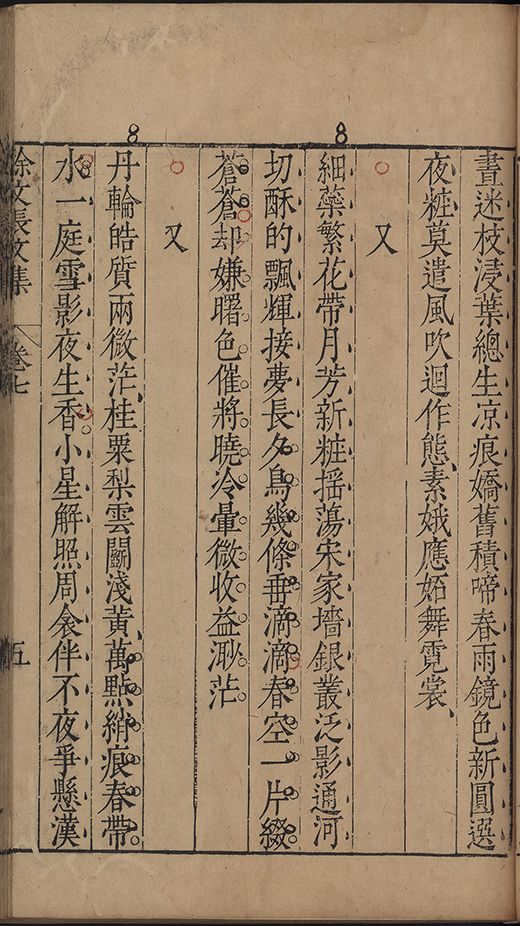 晝迷枝浸葉總生凉痕嬌舊積啼春雨鏡色新圓選
夜粧莫遣風吹迴作態素娥應妬舞霓裳
又
細蘂繁花帶月芳新粧揺蕩宋家墻銀叢泛影通河
切酥的飄輝接夢長夕鳥幾條垂滴滴春空一片綴
蒼蒼却嫌曙色催將曉冷暈微收益渺茫
又
丹輪皓質兩微茫桂粟梨雲鬬淺黃萬點綃痕春帶
水一庭雪影夜生香小星解照周衾伴不夜爭懸漢
徐文長文集
卷七
五